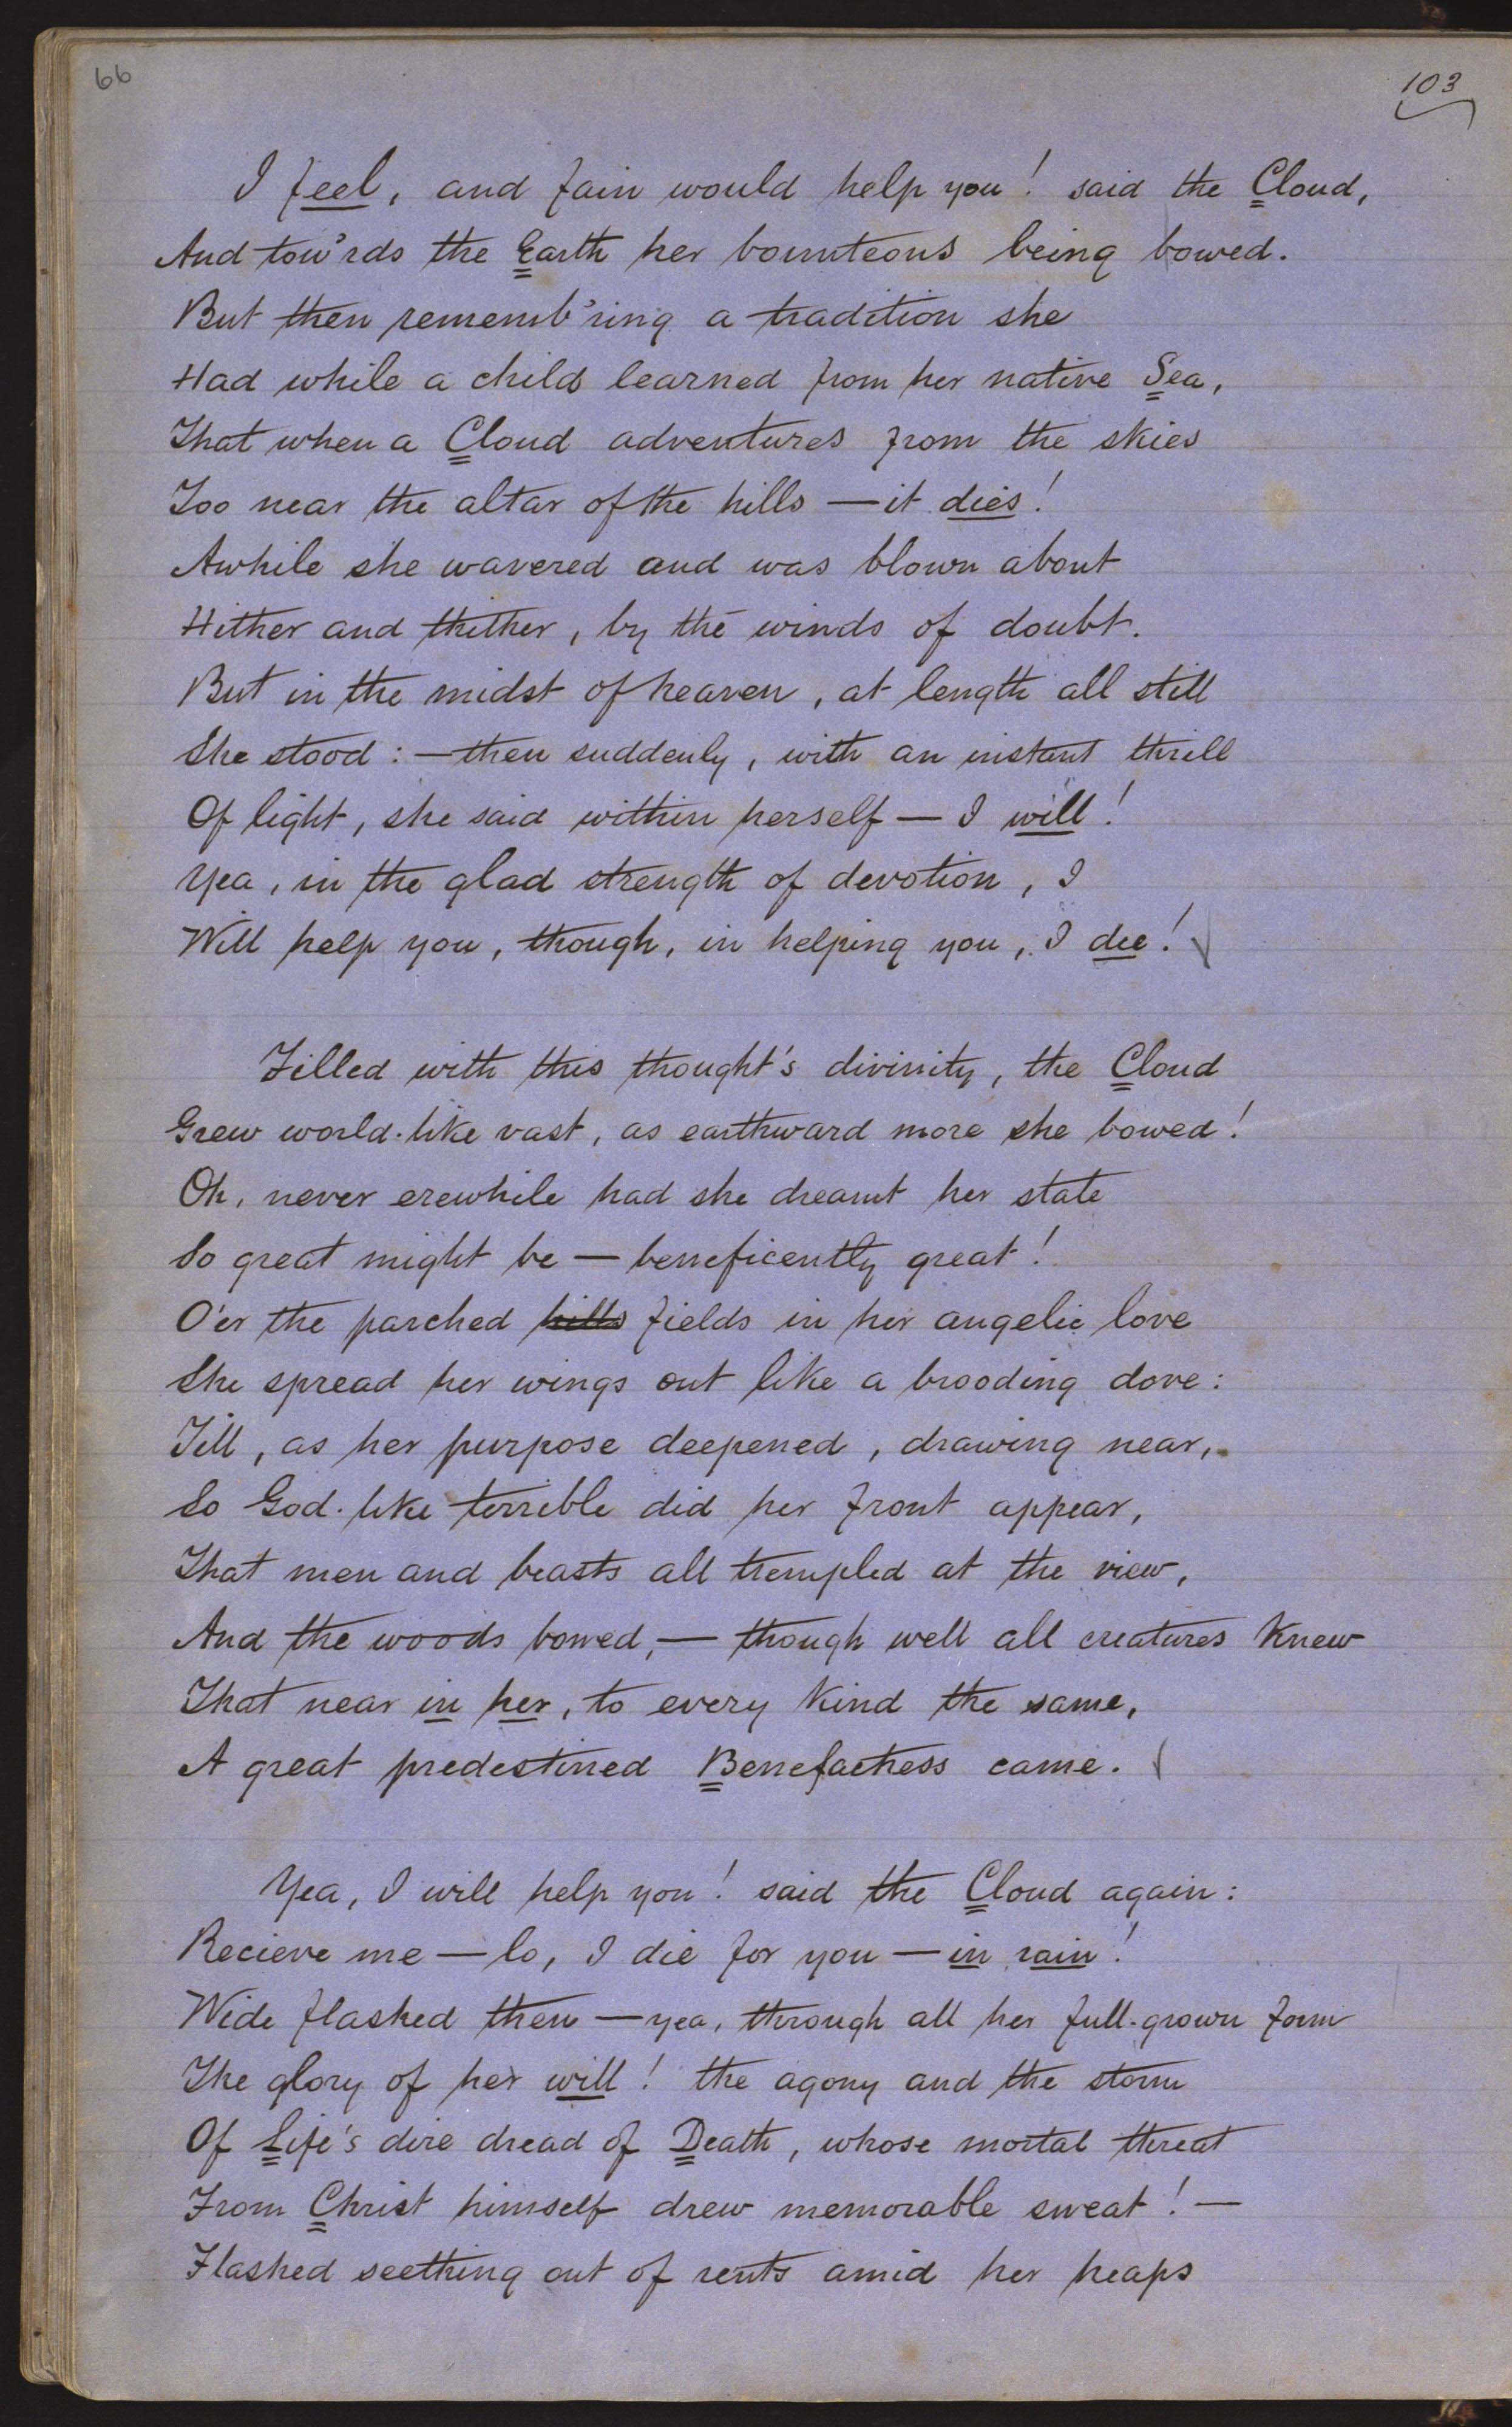 66
103
I feel, and fain would help you! said the Cloud,
And tow'rds the Earth her bounteous being bowed.
But then rememb'ring a tradition she
Had while a child learned from her native Sea,
That when a Cloud adventures from the skies
Too near the altar of the hills — it dies!
Awhile she wavered and was blown about
Hither and thither, by the winds of doubt.
But in the midst of heaven, at length all still
She stood: — then suddenly, with an instant thrill
Of light, she said within herself — I will!
Yea, in the glad strength of devotion, I
Will help you, though, in helping you, I die!
Filled with this thought's divinity, the Cloud
Grew world-like vast, as earthward more she bowed!
Oh, never erewhile had she dreamt her state
So great might be — beneficently great!
O'er the parched hills fields in her angelic love
She spread her wings out like a brooding dove:
Till, as her purpose deepened, drawing near,
So God-like terrible did her front appear,
That men and beasts all trempled at the view,
And the woods bowed, — though well all creatures knew
That near in her, to every kind the same,
A great predestined Benefactress came.
Yea, I will help you! said the Cloud again:
Recieve me — lo, I die for you — in rain!
Wide flashed then — yea, through all her full-grown form
The glory of her will! the agony and the storm
Of Life's dire dread of Death, whose mortal threat
From Christ himself drew memorable sweat! —
Flashed seething out of rents amid her heaps